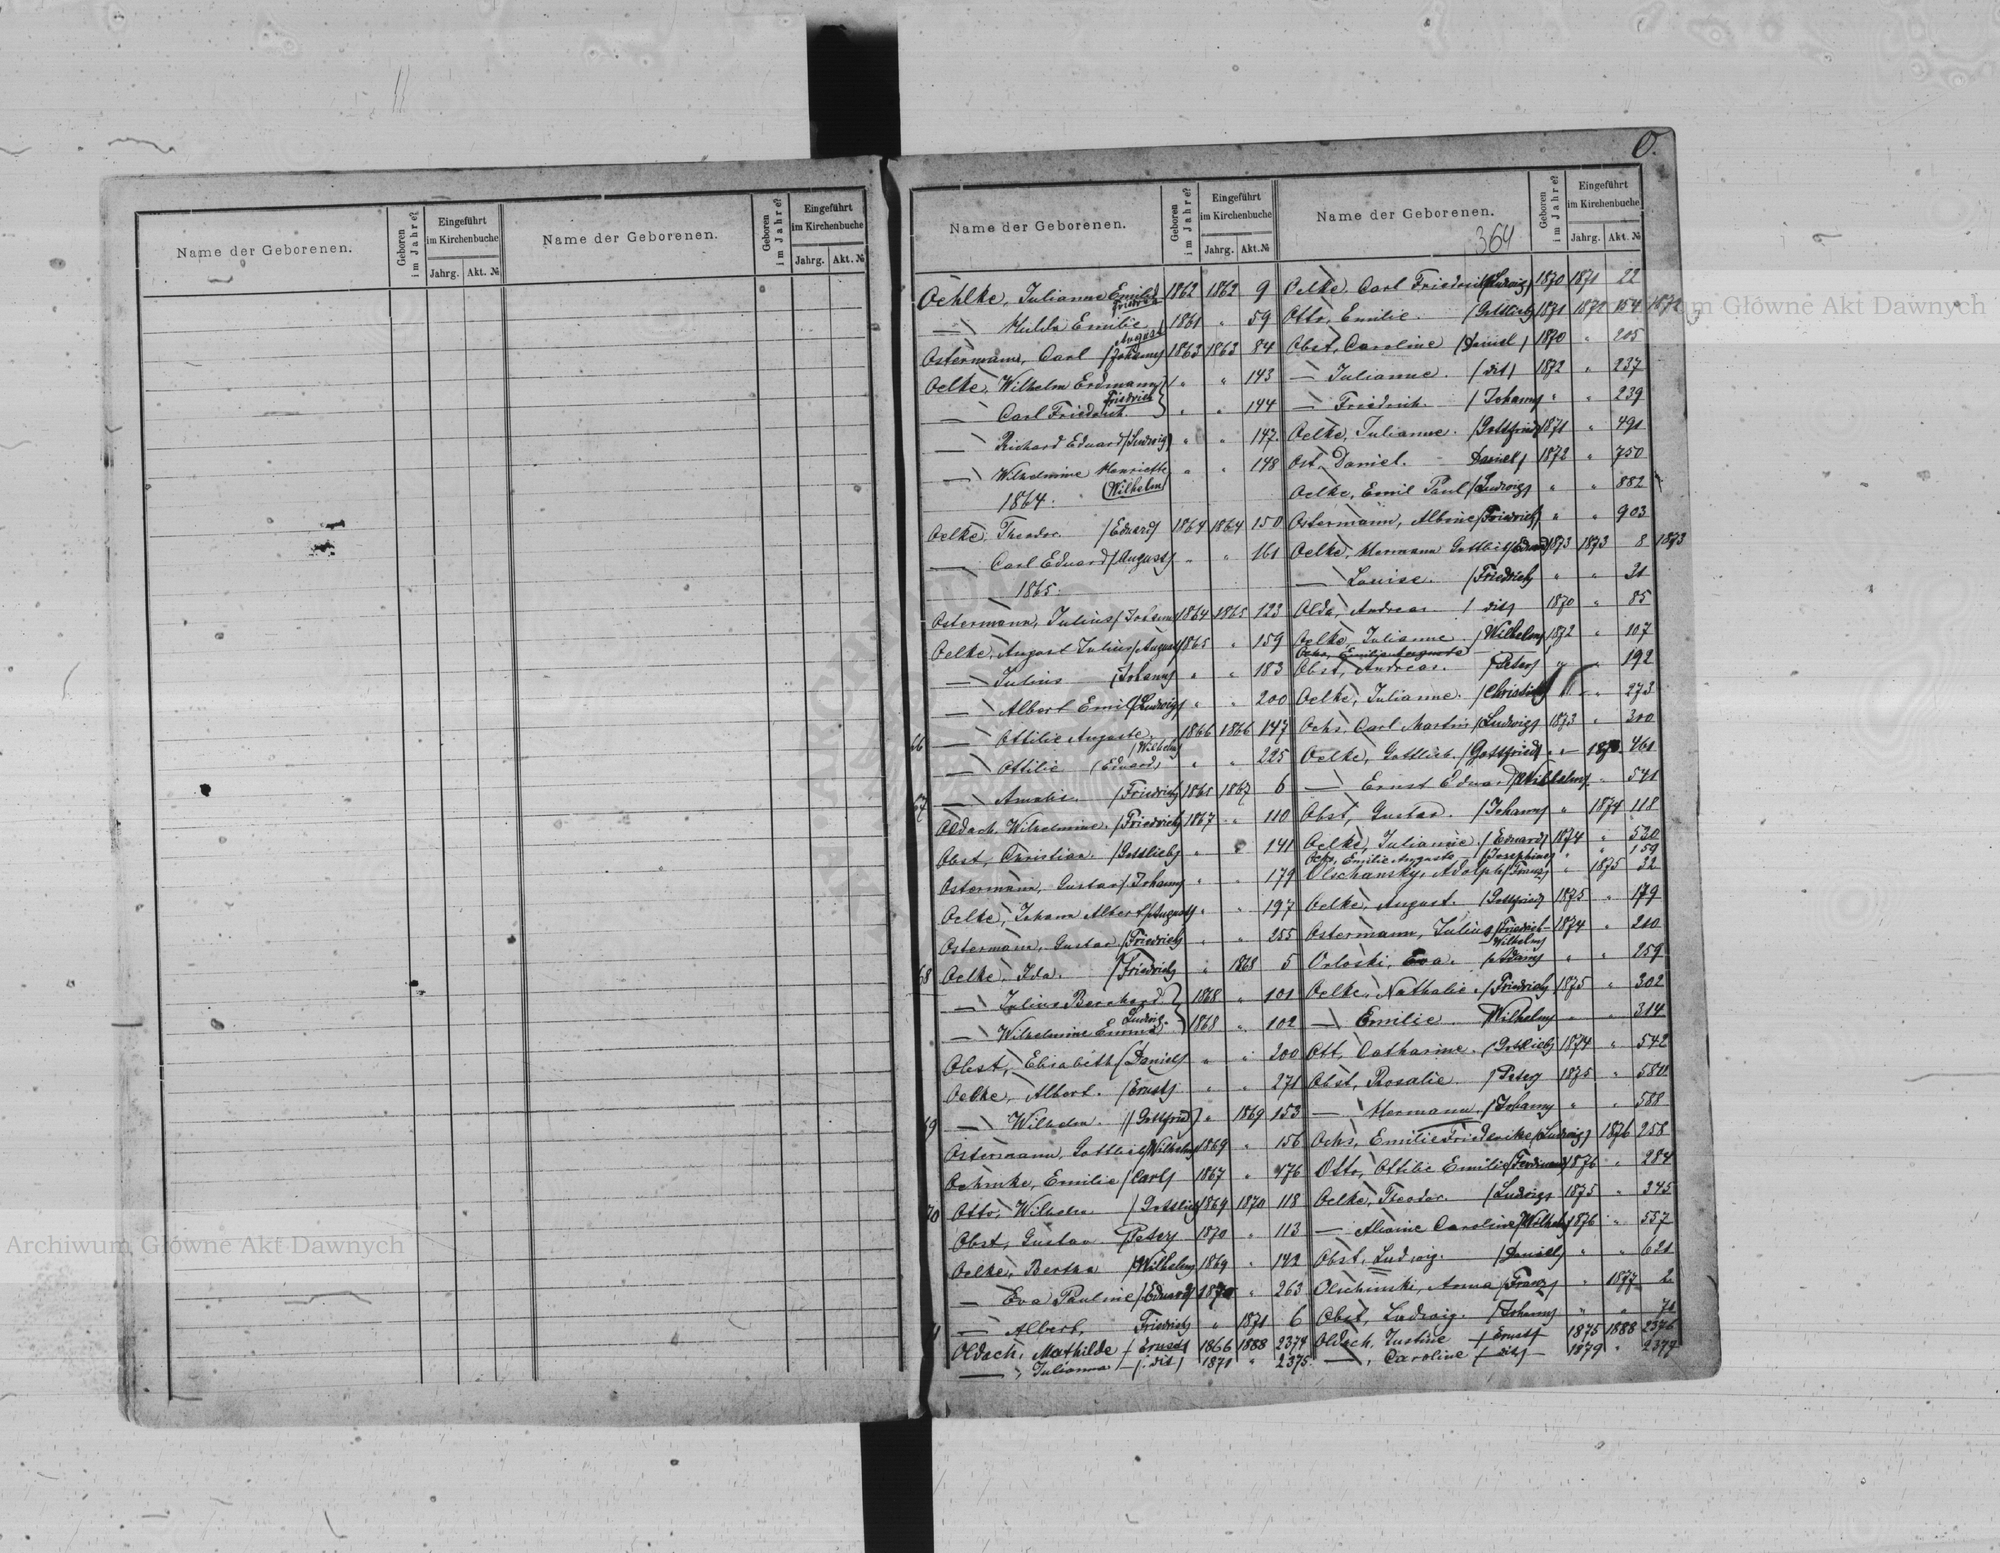 O.
Name der Geborenen.
Geboren im Jahre?
Eingeführt im Kirchenbuche
Jahrg. Akt. №
Name der Geborenen.
Geboren im Jahre?
Eingeführt im Kirchenbuche
Jahrg. Akt. №
Name der Geborenen.
Geboren im Jahre?
Eingeführt im Kirchenbuche
Jahrg. Akt. №
Name der Geborenen.
364
Geboren im Jahre?
Eingeführt im Kirchenbuche
Jahrg. Akt. №
Oehlke, Julianne Emilie 1862 1862 9
— Hulda Emilie 1861 " 59
Ostermann, Carl August (Johann) 1863 1863 84
Oelke, Wilhelm Erdmann " " 143
— Carl Friedrich (Friedrich) " " 144
— Richard Eduard (Ludwig) " " 147
— Wilhelmine Henriette (Wilhelm) " " 148
1864.
Oelke, Theodor (Eduard) 1864 1864 150
— Carl Eduard (August) " " 161
1865.
Ostermann, Julius (Johann) 1864 1865 123
Oelke, August Julius (August) 1865 " 159
— Julius (Johann) " " 183
— Albert Emil (Ludwig) " " 200
66 — Ottilie Auguste (Wilhelm) 1866 1866 147
— Ottilie (Eduard) " " 225
67 — Amalie (Friedrich) 1865 1867 6
Oldach, Wilhelmine (Friedrich) 1867 " 110
Obst, Christian (Gottlieb) " " 141
Ostermann, Gustav (Johann) " " 179
Oelke, Johann Albert (August) " " 197
Ostermann, Gustav (Friedrich) " " 255
68 Oelke, Ida (Friedrich) " 1868 5
— Julius 1868 " 101
— Wilhelmine Emma (Ludwig) 1868 " 102
Obst, Elisabeth (Daniel) " " 200
Oelke, Albert (Ernst) " " 271
69 — Wilhelm (Gottfried) " 1869 153
Ostermann, Gottlieb (Wilhelm) 1869 " 156
Oehmke, Emilie (Carl) 1867 " 476
70 Otto, Wilhelm (Gottlieb) 1869 1870 118
Obst, Gustav (Peter) 1870 " 113
Oelke, Bertha (Wilhelm) 1869 " 142
— Eva Pauline (Eduard) 1870 " 263
— Albert, Friedrich " 1871 6
Oldach, Mathilde (Ernest) 1866 1888 2374
—, Julianna (dit) 1871 " 2375
Oelke, Carl Friedrich (Ludwig) 1870 1871 22
Otto, Emilie (Gottlieb) 1871 1872 154 1872
Obst, Caroline (Daniel) 1870 " 205
— Julianne (dit) 1872 " 237
— Friedrich (Johann) " " 239
Oelke, Julianne (Gottfried) 1871 " 491
Ost, Daniel. Daniel 1872 " 750
Oelke, Emil Paul (Ludwig) " " 882
Ostermann, Albine (Friedrich) " " 903
Oelke, Hermann Gottlieb (Eduard) 1873 1873 8 1873
— Louise (Friedrich) " " 31
Olda, Andreas (dit) 1870 " 85
Oelke, Julianne (Wilhelm) 1872 " 107
Ochs, Emilie Auguste
Obst, Andreas (Peter) " " 192
Oelke, Julianne (Christian) " 273
Ochs, Carl Martin (Ludwig) 1873 " 300
Oelke, Gottlieb (Gottfried) " 461
— Ernst Eduard (Wilhelm) " 541
Obst, Gustav (Johann) " 1874 118
Oelke, Julianne (Eduard) 1874 " 520
Ochs, Emilie Auguste (Josephine) " " 159
Olschansky, Adolph (Franz) " 1875 32
Oelke, August (Gottfried) 1875 " 179
Ostermann, Julius (Friedrich Wilhelm) 1874 " 210
Orloski, Eva (Adam) " " 259
Oelke, Nathalie (Friedrich) 1875 " 302
— Emilie (Wilhelm) " " 314
Ott, Catharine (Gottlieb) 1874 " 542
Obst, Rosalie (Peter) 1875 "
— Hermann (Johann) " " 588
Ochs, Emilie Friederike (Ludwig) 1876 258
Otto, Ottilie Emilie (Ferdinand) 1876 " 284
Oelke, Theodor (Ludwig) 1875 " 345
— Caroline (Wilhelm) 1876 " 557
Obst, Ludwig (Daniel) " " 621
Olschinski, Anna (Franz) " 1877 2
Obst, Ludwig (Johann) " "
Oldach, Justine (Ernst) 1875 1888 2376
—, Caroline (dit) 1879 " 2377
Archiwum Główne Akt Dawnych
Archiwum Główne Akt Dawnych